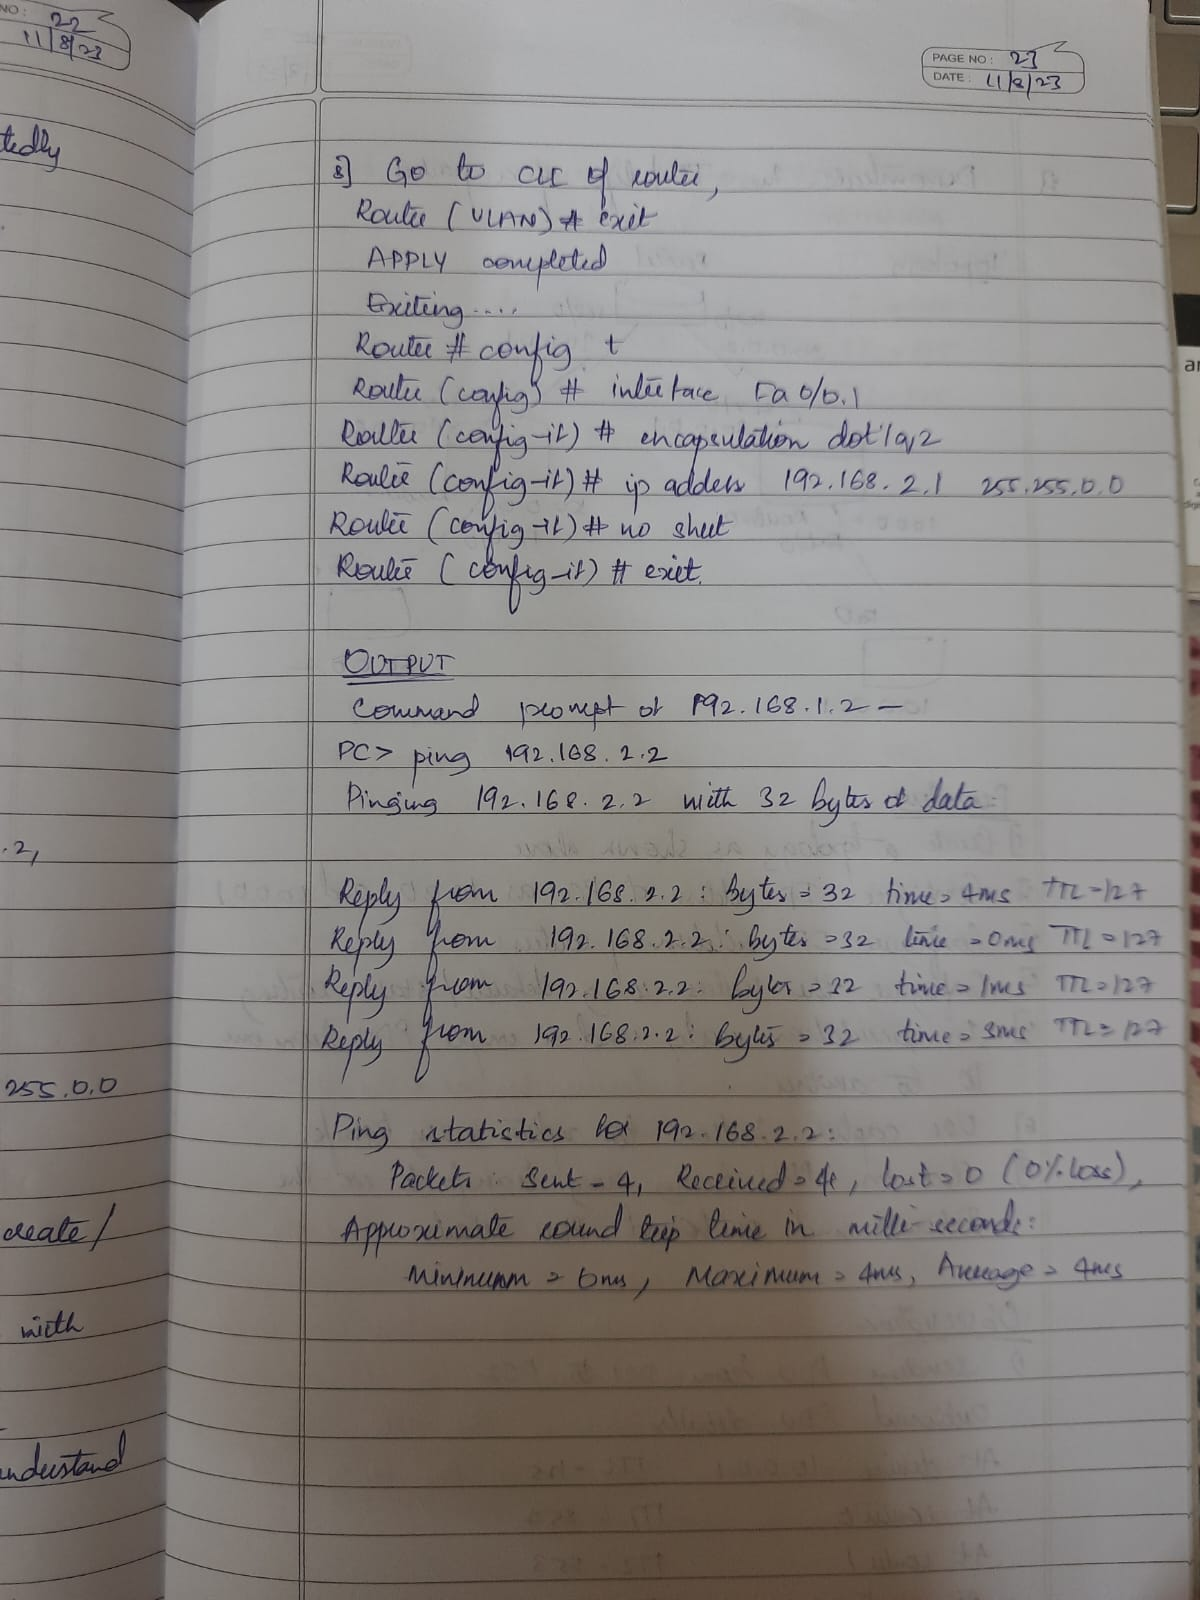 NO: 22
11/8/23
tedly
.2,
255.0.0
create/
with
understand
PAGE NO: 23
DATE: 11/8/23
8] Go to CLI of router,
Router (VLAN) # exit
APPLY completed
Exiting....
Router # config t
Router (config) # interface Fa 0/0.1
Router (config-if) # encapsulation dot1q 2
Router (config-if) # ip address 192.168.2.1 255.255.0.0
Router (config-if) # no shut
Router (config-if) # exit.
OUTPUT
Command prompt of 192.168.1.2 -
PC> ping 192.168.2.2
Pinging 192.168.2.2 with 32 bytes of data:
Reply from 192.168.2.2: bytes = 32 time = 4ms TTL = 127
Reply from 192.168.2.2: bytes = 32 time = 0ms TTL = 127
Reply from 192.168.2.2: bytes = 32 time = 1ms TTL = 127
Reply from 192.168.2.2: bytes = 32 time = 3ms TTL = 127
Ping statistics for 192.168.2.2:
Packets: Sent = 4, Received = 4, Lost = 0 (0% loss),
Approximate round trip time in milli-seconds:
Minimum = 0ms, Maximum = 4ms, Average = 4ms